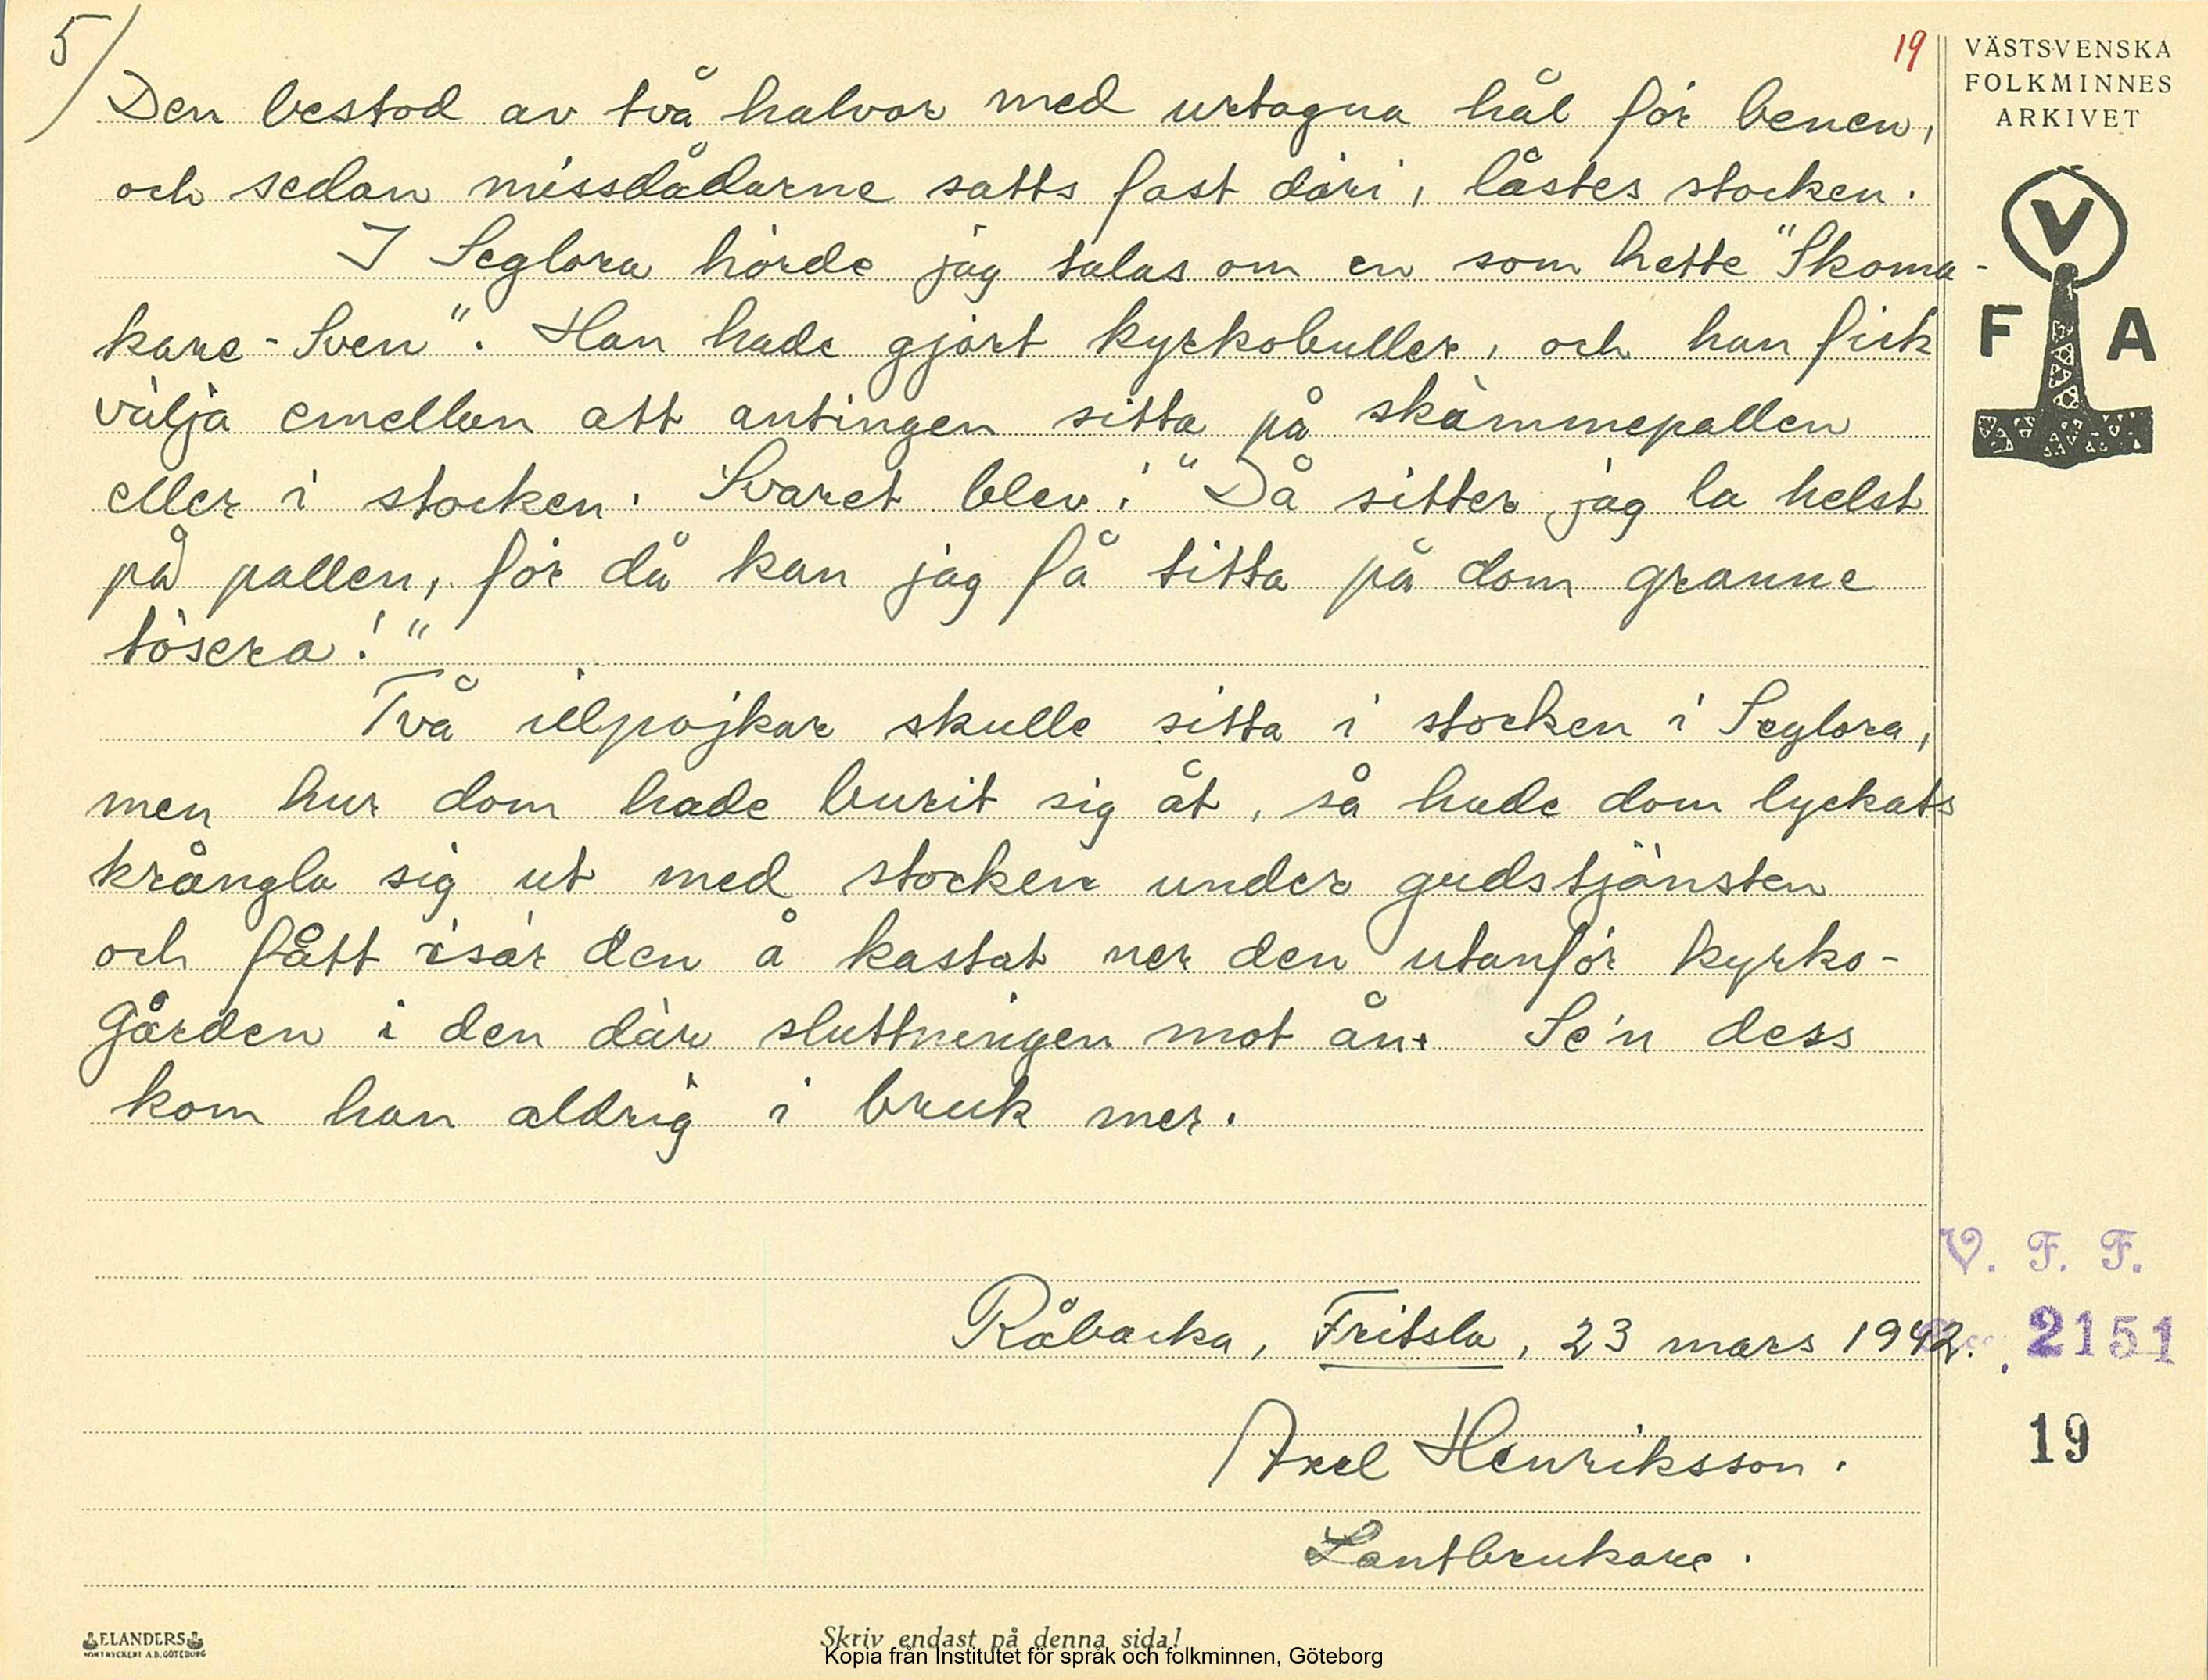 5/
19
VÄSTSVENSKA
FOLKMINNES
ARKIVET
V
F A
Den bestod av två halvor med urtagna hål för benen,
och sedan missdådarne satts fast däri, låstes stocken.
I Seglora hörde jag talas om en som hette "Skoma-
kare-Sven". Han hade gjort kyrkobuller, och han fick
välja emellan att antingen sitta på skämmepallen
eller i stocken. Svaret blev: "Då sitter jag la helst
på pallen, för då kan jag få titta på dom granne
tösera!"
Två ielpojkar skulle sitta i stocken i Seglora,
men hur dom hade burit sig åt, så hade dom lyckats
krångla sig ut med stocken under gudstjänsten
och fått isär den å kastat ner den utanför kyrko-
gården i den där sluttningen mot ån. Se'n dess
kom han aldrig i bruk mer.
Råbacka, Fritsla, 23 mars 1942.
Axel Henriksson.
Lantbrukare.
V. F. F.
2151
19
ELANDERS
BOKTRYCKERI A.B. GÖTEBORG
Skriv endast på denna sida!
Kopia från Institutet för språk och folkminnen, Göteborg